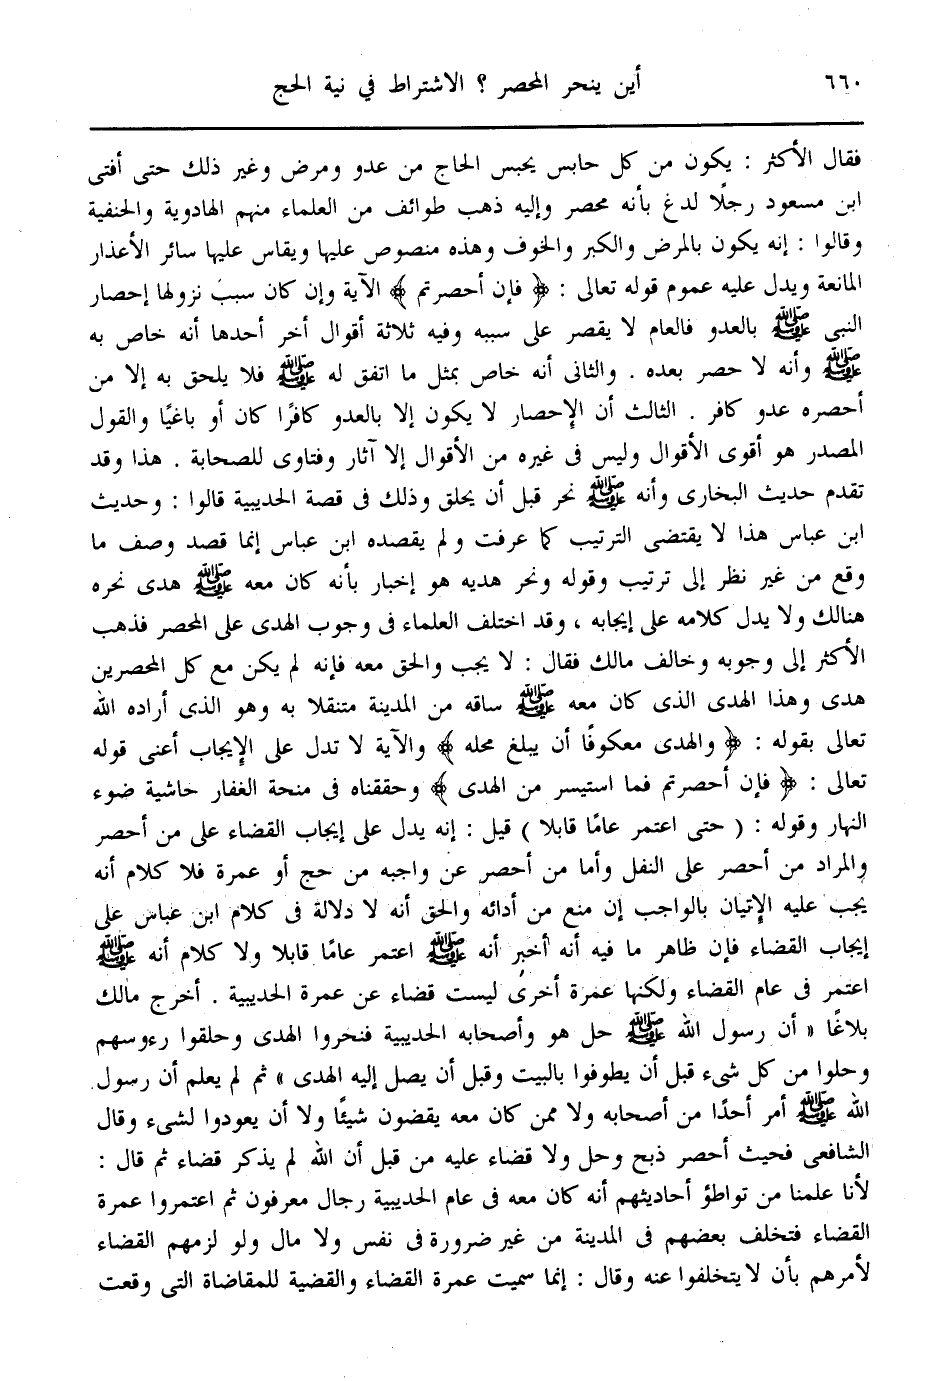 ٦٦٠ أين ينحر المحصر ؟ الاشتراط في نية الحج
فقال الأكثر : يكون من كل حابس يحبس الحاج من عدو ومرض وغير ذلك حتى أفتى
ابن مسعود رجلًا لدغ بأنه محصر وإليه ذهب طوائف من العلماء منهم الهادوية والحنفية
وقالوا : إنه يكون بالمرض والكبر والخوف وهذه منصوص عليها ويقاس عليها سائر الأعذار
المانعة ويدل عليه عموم قوله تعالى : ﴿ فإن أحصرتم ﴾ الآية وإن كان سبب نزولها إحصار
النبى ﷺ بالعدو فالعام لا يقصر على سببه وفيه ثلاثة أقوال أخر أحدها أنه خاص به
ﷺ وأنه لا حصر بعده . والثانى أنه خاص بمثل ما اتفق له ﷺ فلا يلحق به إلا من
أحصره عدو كافر . الثالث أن الإحصار لا يكون إلا بالعدو كافرًا كان أو باغيًا والقول
المصدر هو أقوى الأقوال وليس فى غيره من الأقوال إلا آثار وفتاوى للصحابة . هذا وقد
تقدم حديث البخارى وأنه ﷺ نحر قبل أن يحلق وذلك فى قصة الحديبية قالوا : وحديث
ابن عباس هذا لا يقتضى الترتيب كما عرفت ولم يقصده ابن عباس إنما قصد وصف ما
وقع من غير نظر إلى ترتيب وقوله ونحر هديه هو إخبار بأنه كان معه ﷺ هدى نحره
هنالك ولا يدل كلامه على إيجابه ، وقد اختلف العلماء فى وجوب الهدى على المحصر فذهب
الأكثر إلى وجوبه وخالف مالك فقال : لا يجب والحق معه فإنه لم يكن مع كل المحصرين
هدى وهذا الهدى الذى كان معه ﷺ ساقه من المدينة متنفلا به وهو الذى أراده الله
تعالى بقوله : ﴿ والهدى معكوفًا أن يبلغ محله ﴾ والآية لا تدل على الإيجاب أعنى قوله
تعالى : ﴿ فإن أحصرتم فما استيسر من الهدى ﴾ وحققناه فى منحة الغفار حاشية ضوء
النهار وقوله : ( حتى اعتمر عامًا قابلا ) قيل : إنه يدل على إيجاب القضاء على من أحصر
والمراد من أحصر على النفل وأما من أحصر عن واجبه من حج أو عمرة فلا كلام أنه
يجب عليه الإتيان بالواجب إن منع من أدائه والحق أنه لا دلالة فى كلام ابن عباس على
إيجاب القضاء فإن ظاهر ما فيه أنه أخبر أنه ﷺ اعتمر عامًا قابلا ولا كلام أنه ﷺ
اعتمر فى عام القضاء ولكنها عمرة أخرى ليست قضاء عن عمرة الحديبية . أخرج مالك
بلاغًا « أن رسول الله ﷺ حل هو وأصحابه الحديبية فنحروا الهدى وحلقوا رءوسهم
وحلوا من كل شىء قبل أن يطوفوا بالبيت وقبل أن يصل إليه الهدى » ثم لم يعلم أن رسول
الله ﷺ أمر أحدًا من أصحابه ولا ممن كان معه يقضون شيئًا ولا أن يعودوا لشىء وقال
الشافعى فحيث أحصر ذبح وحل ولا قضاء عليه من قبل أن الله لم يذكر قضاء ثم قال :
لأنا علمنا من تواطؤ أحاديثهم أنه كان معه فى عام الحديبية رجال معرفون ثم اعتمروا عمرة
القضاء فتخلف بعضهم فى المدينة من غير ضرورة فى نفس ولا مال ولو لزمهم القضاء
لأمرهم بأن لا يتخلفوا عنه وقال : إنما سميت عمرة القضاء والقضية للمقاضاة التى وقعت